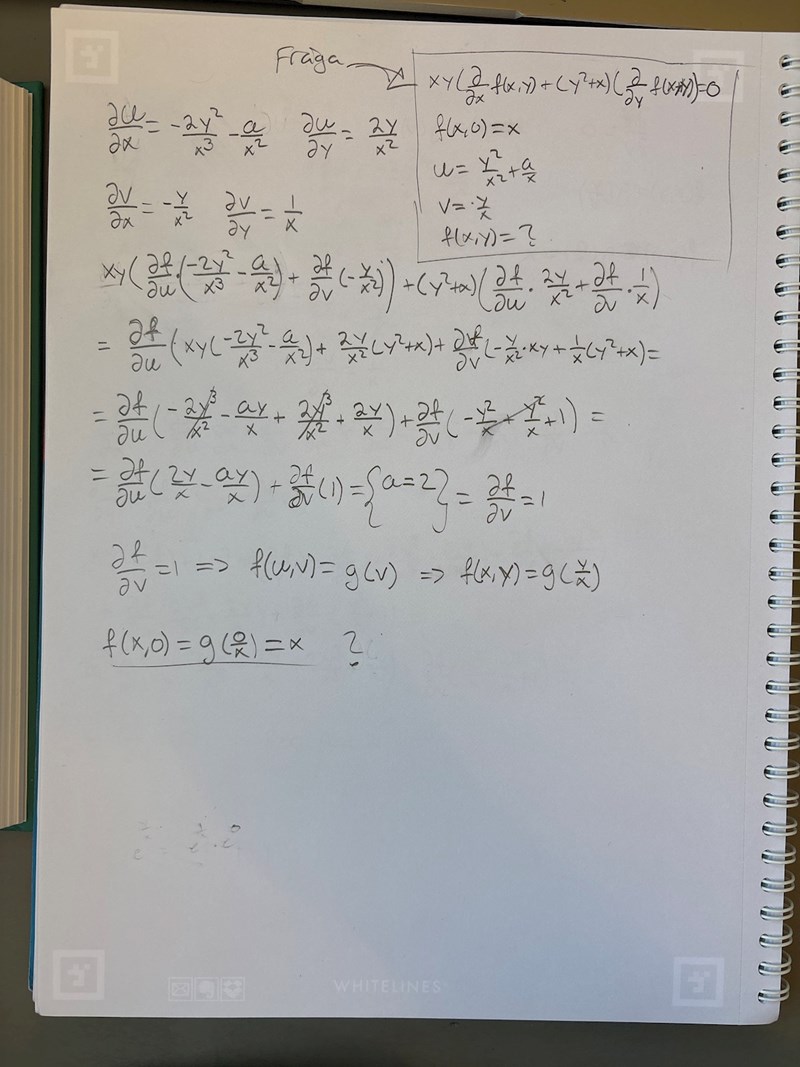 Fråga
xy(∂/∂x f(x,y) + (y²+x)(∂/∂y f(x,y))=0
f(x,0)=x
u= y²/x² + a/x
v= y/x
f(x,y)= ?
∂u/∂x = -2y²/x³ - a/x² ∂u/∂y = 2y/x²
∂v/∂x = -y/x² ∂v/∂y = 1/x
xy(∂f/∂u·(-2y²/x³ - a/x²) + ∂f/∂v(-y/x²)) + (y²+x)(∂f/∂u · 2y/x² + ∂f/∂v · 1/x)
= ∂f/∂u (xy(-2y²/x³ - a/x²) + 2y/x²(y²+x) + ∂f/∂v(-y/x²·xy + 1/x(y²+x) =
= ∂f/∂u (-2y³/x² - ay/x + 2y³/x² + 2y/x) + ∂f/∂v (-y²/x + y²/x + 1) =
= ∂f/∂u (2y/x - ay/x) + ∂f/∂v (1) = {a=2} = ∂f/∂v = 1
∂f/∂v = 1 => f(u,v) = g(v) => f(x,y) = g(y/x)
f(x,0) = g(0/x) = x ?
WHITELINES